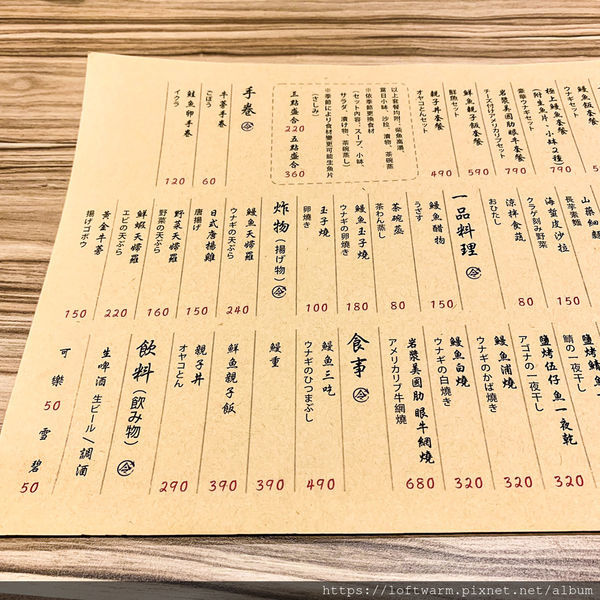 鰻魚飯套餐
ウナギセット
極上鰻魚套餐
(附生魚片, 小缽2種)
豪華ウナギセット
790
岩漿美國肋眼牛套餐
チーズ付けアメリカリブセット
790
鮮魚親子飯套餐
鮮魚セット
590
親子丼套餐
オヤコとんセット
490
以上套餐均附:柴魚高湯、
當日小缽、沙拉、漬物、茶碗蒸
※依季節更換食材
(セット内容:スープ、小鉢、
サラダ、漬け物、茶碗蒸し)
※季節により食材變更可能生魚片
(さしみ)
五點盛合 360
三點盛合 220
手卷
牛蒡手卷
ごぼう
60
鮭魚卵手卷
イクラ
120
山藥細麵
長芋素麺
海蜇皮沙拉
クラゲ刻み野菜
150
涼拌食蔬
おひたし
80
一品料理
鰻魚醋物
うざす
150
茶碗蒸
茶わん蒸し
80
鰻魚玉子燒
ウナギの卵焼き
180
玉子燒
卵焼き
100
炸物(揚げ物)
鰻魚天婦羅
ウナギの天ぷら
240
日式唐揚雞
唐揚げ
150
野菜天婦羅
野菜の天ぷら
160
鮮蝦天婦羅
エビの天ぷら
220
黃金牛蒡
揚げゴボウ
150
鯖の一夜干し
鹽烤伍仔魚一夜乾
アゴナの一夜干し
320
鰻魚浦燒
ウナギのかば焼き
320
鰻魚白燒
ウナギの白焼き
320
岩漿美國肋眼牛網燒
アメリカリブ牛網焼
680
食事
鰻魚三吃
ウナギのひつまぶし
490
鰻重
390
鮮魚親子飯
390
親子丼
オヤコとん
290
飲料(飲み物)
生啤酒 生ビール/調酒
可樂 50 雪碧 50
https://loftwarm.pixnet.net/album